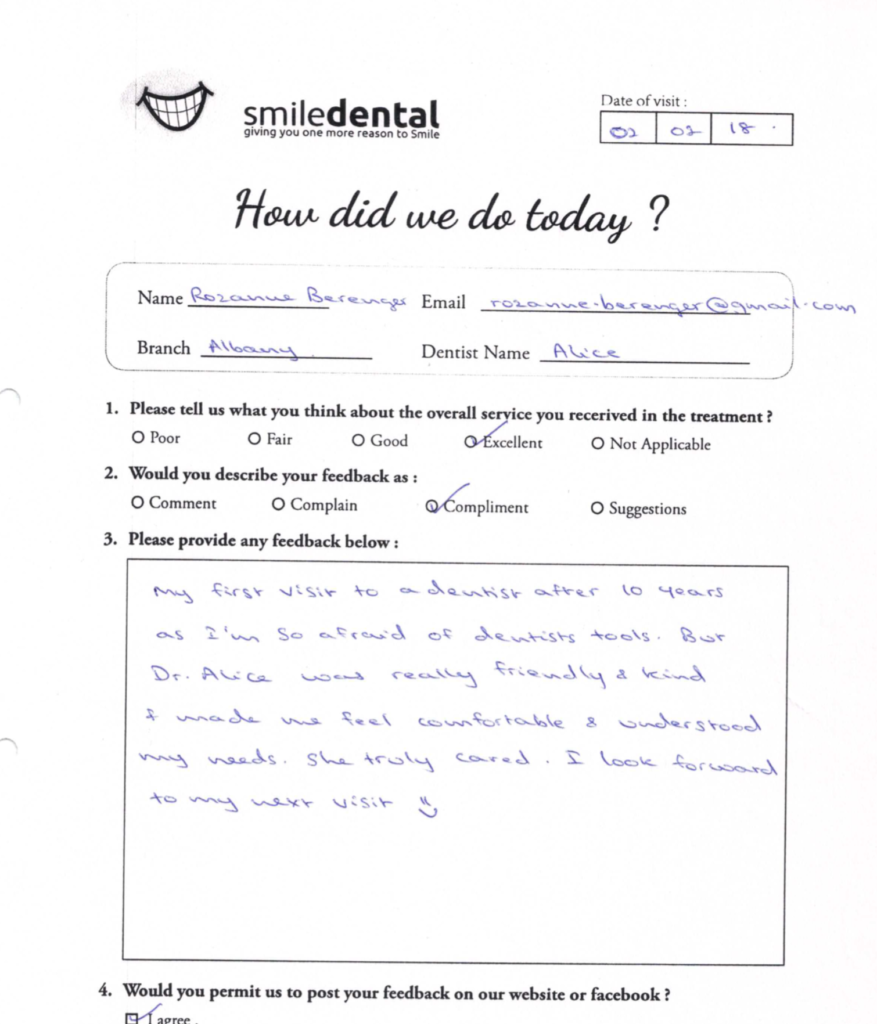 smiledental
giving you one more reason to Smile
Date of visit :
02 02 18
How did we do today ?
Name Rozanne Berenger Email rozanne.berenger@gmail.com
Branch Albany Dentist Name Alice
1. Please tell us what you think about the overall service you recerived in the treatment ?
Poor Fair Good Excellent Not Applicable
2. Would you describe your feedback as :
Comment Complain Compliment Suggestions
3. Please provide any feedback below :
My first visit to a dentist after 10 years
as I'm so afraid of dentists tools. But
Dr. Alice was really friendly & kind
& made me feel comfortable & understood
my needs. She truly cared. I look forward
to my next visit
4. Would you permit us to post your feedback on our website or facebook ?
I agree.